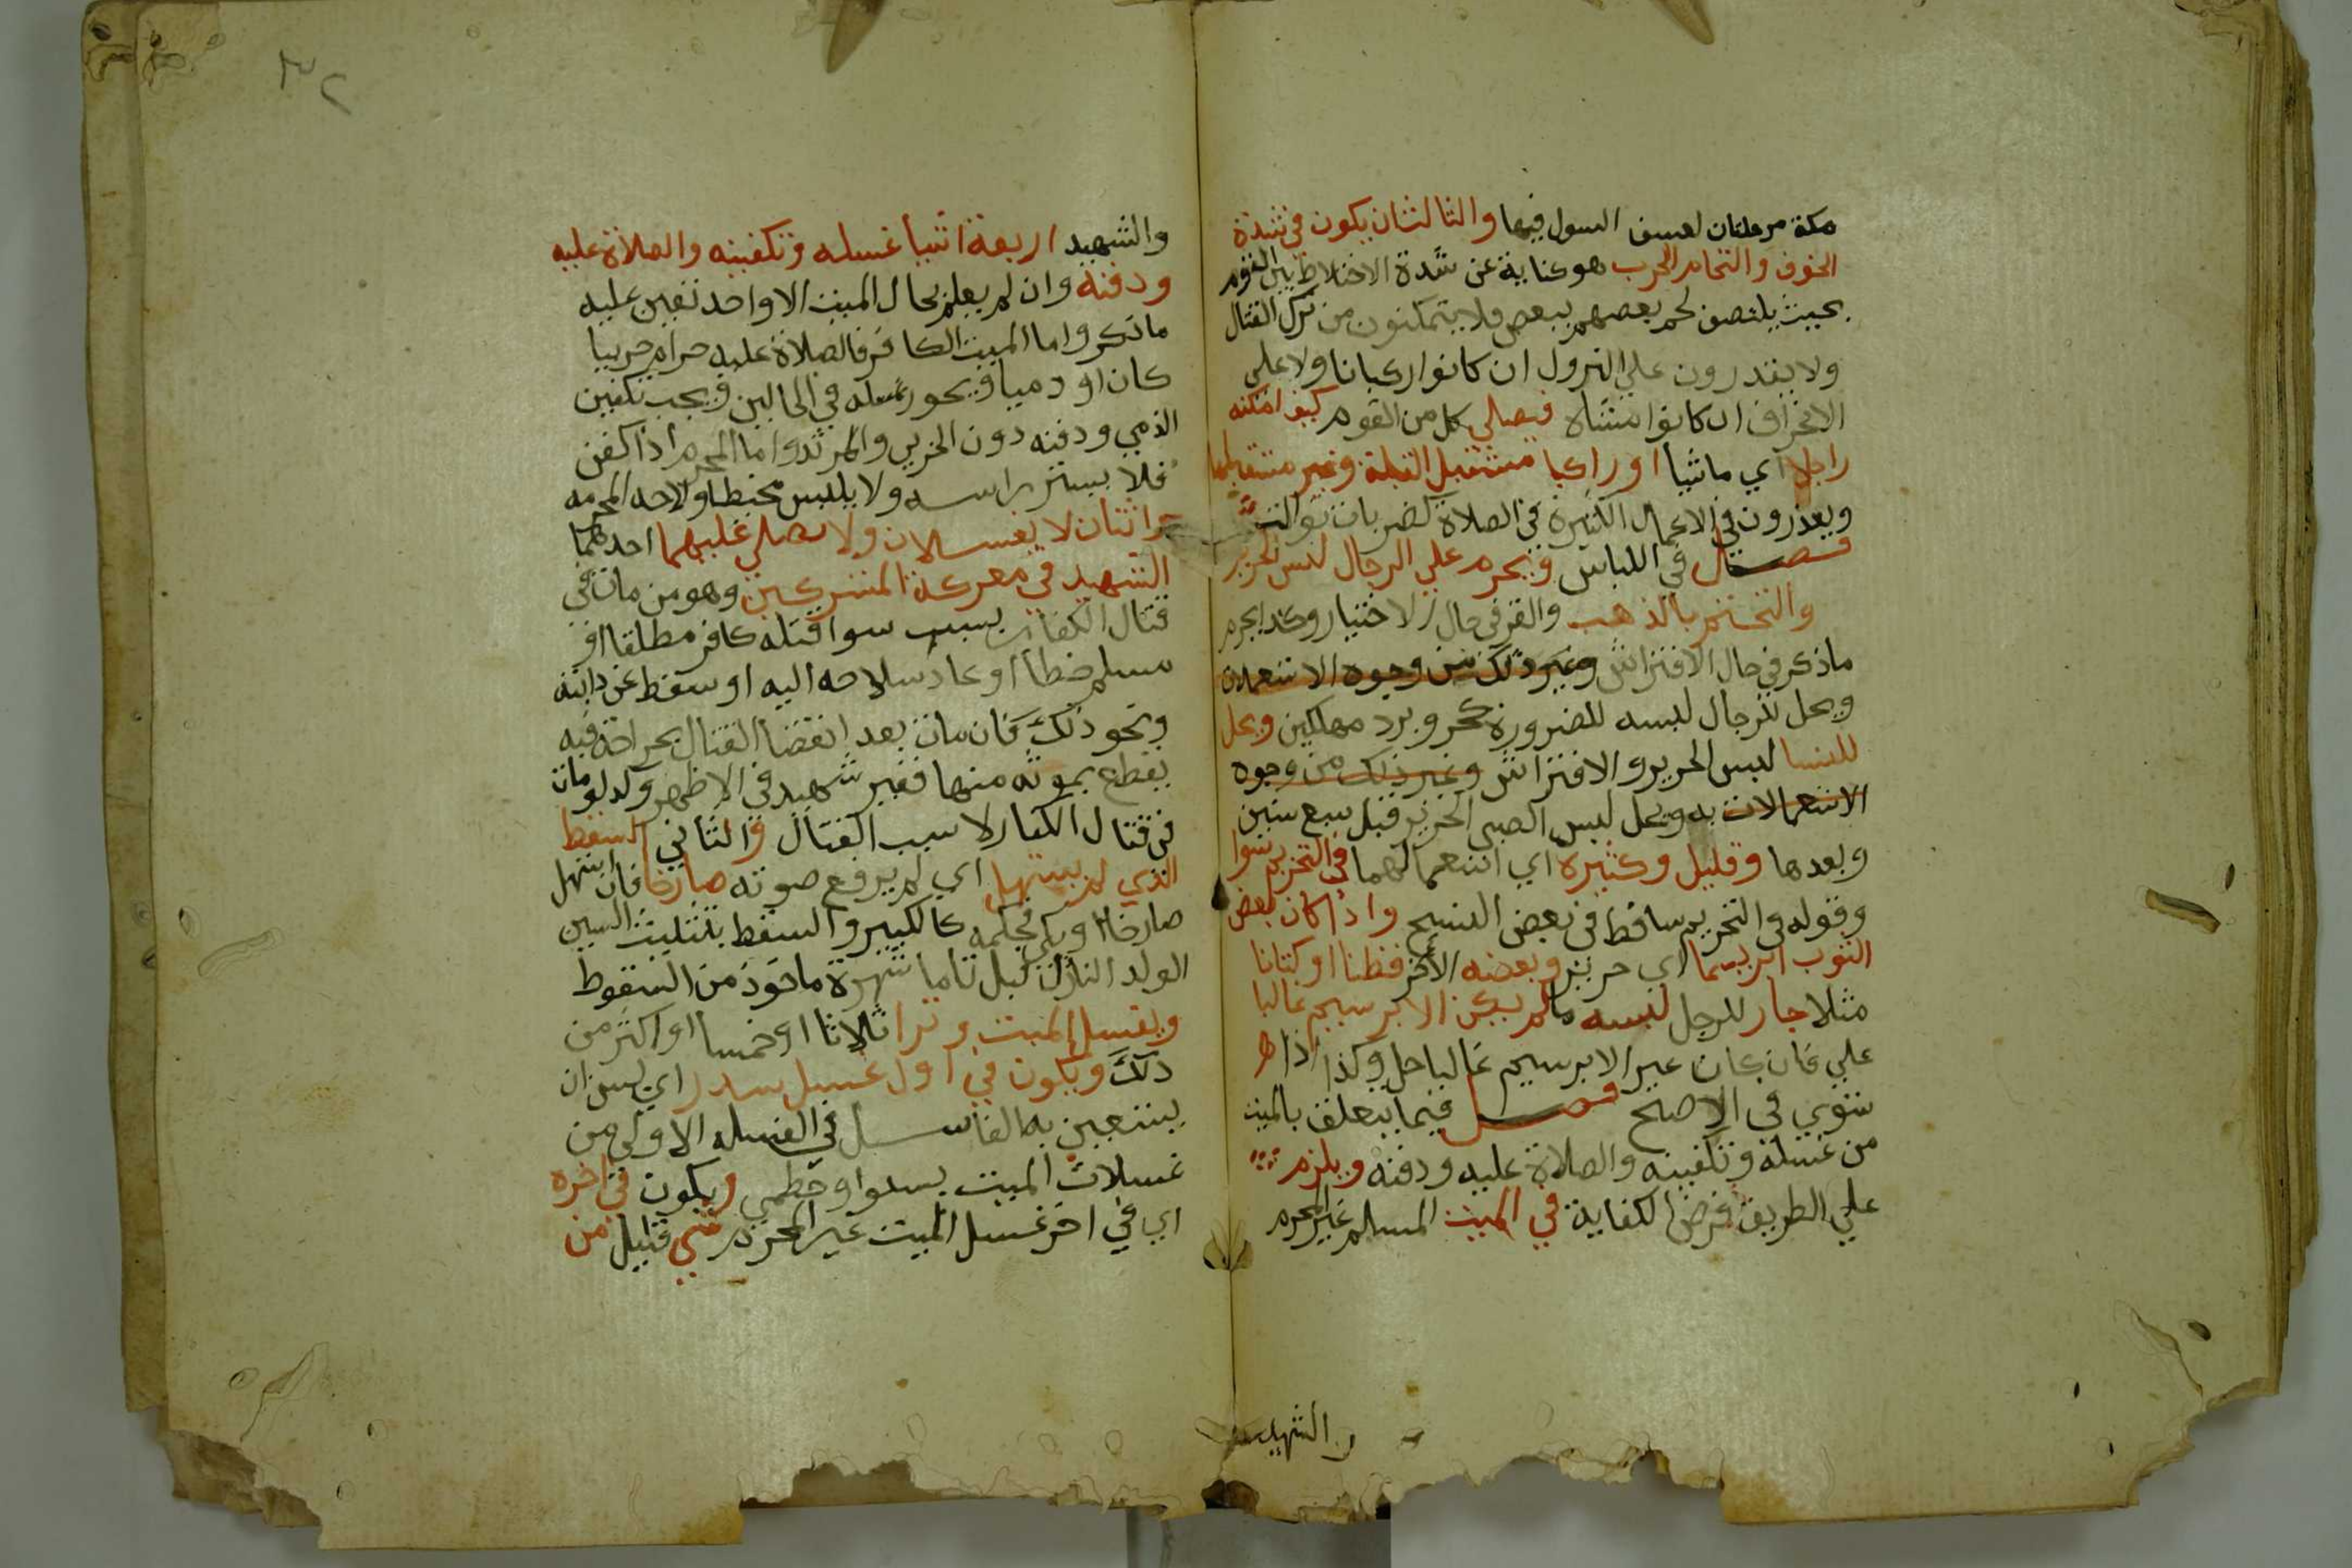 مكة مرحلتان لعسف السول فيها والثالثان يكون في شدة
الخوف والتحام الحرب هو كناية عن شدة الاختلاط بين القوم
بحيث يلتصق لحم بعضهم ببعض فلا يتمكنون من ترك القتال
ولا يقدرون علي النزول ان كانوا ركبانا ولا علي
الانحراف ان كانوا مشاه فيصلي كل من القوم كيف امكنه
راجلا اي ماشيا او راكبا مستقبل القبلة وغير مستقبلها
ويعذرون في الاعمال الكثيرة في الصلاة كضربات توالت
فصل في اللباس ويحرم علي الرجال لبس الحرير
والتختم بالذهب والقز في حال الاختيار وكذا يحرم
ما ذكر في حال الافتراش وغير ذلك من وجوه الاستعملات
ويحل للرجال لبسه للضرورة كحر وبرد مهلكين ويحل
للنسا لبس الحرير والافتراش وغير ذلك من وجوه
الاستعمالات به ويحل لبس الصبي الحرير قبل سبع سنين
وبعدها وقليل وكثيره اي استعمالهما في التحريم سوا
وقوله في التحريم ساقط في بعض النسخ واذا كان بعض
الثوب ابريسما اي حريرا وبعضه الاخر قطنا او كتانا
مثلا جاز للرجل لبسه ما لم يكن الابرسيم غالبا
علي فان كان غير الابرسيم غالبا حل وكذا اذا
ستوي في الاصح فصل فيما يتعلق بالميت
من غسله وتكفينه والصلاة عليه ودفنه ويلزم
علي الطريق فرض الكفاية في الميت المسلم غير المحرم
والشهيد
٣٢
والشهيد اربعة اشيا غسله وتكفينه والصلاة عليه
ودفنه وان لم يعلم بحال الميت الا واحد تعين عليه
ما ذكر واما الميت الكافر فالصلاة عليه حرام حربيا
كان او دميا ويجوز غسله في الحالين ويجب تكفين
الذمي ودفنه دون الحربي والمرتد واما المحرم اذا كفن
فلا يستر راسه ولا يلبس مخيطا ولاحه المحرمه
واثنان لا يغسلان ولا يصلي عليهما احدهما
الشهيد في معركة المشركين وهو من مات في
قتال الكفار بسبب سوا قتله كافر مطلقا او
مسلم خطأ او عاد سلاحه اليه او سقط عن دابته
ونحو ذلك فان مات بعد انقضا القتال بجراحة فيه
يقطع بموته منها فغير شهيد في الاظهر وكذ لو مات
في قتال الكفار لا بسبب القتال والثاني السقط
الذي لم يستهل اي لم يرفع صوته صارخا فان استهل
صارخا او بكي فحكمه كالكبير والسقط بتثليث السين
الولد النازل قبل تاما شهره ماخوذ من السقوط
ويغسل الميت وترا ثلاثا او خمسا او اكثر من
ذلك ويكون في اول غسل سدر اي يسن ان
يستعين به الغاسل في الغسله الاولي من
غسلات الميت بسدر او خطمي ويكون في اخره
اي في اخر غسل الميت غير المحرم شي قليل من